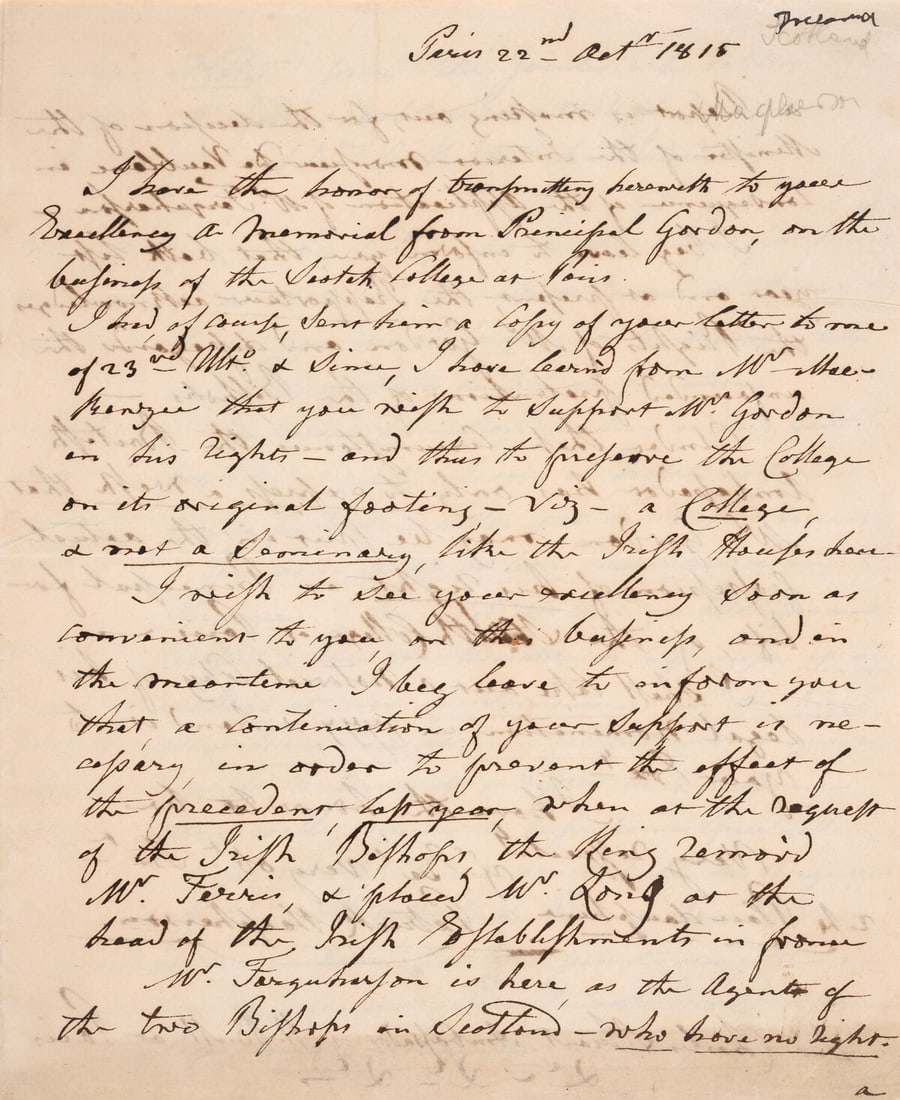 Ireland
Scotland
Paris 22nd Octr 1815
Macpherson
I have the honor of transmitting herewith to your
Excellency a Memorial from Principal Gordon, on the
business of the Scotch College at Paris.
I had, of course, sent him a Copy of your letter to me
of 23rd Ulto. & Since, I have learnd from Mr Mac-
Kenzie that you wish to Support Mr Gordon
in his rights – and thus to preserve the College
on its original footing – Viz – a College,
& not a Seminary, like the Irish Houses here.
I wish to see your excellency soon as
convenient to you, on this business, and in
the meantime I beg leave to inform you
that, a continuation of your Support is ne-
cessary, in order to prevent the effect of
the precedent, last year, when at the request
of the Irish Bishops, the King remov'd
Mr Ferris, & placed Mr Long at the
head of the Irish Establishments in france
Mr Farquharson is here, as the Agent of
the two Bishops in Scotland – who have no right.
a